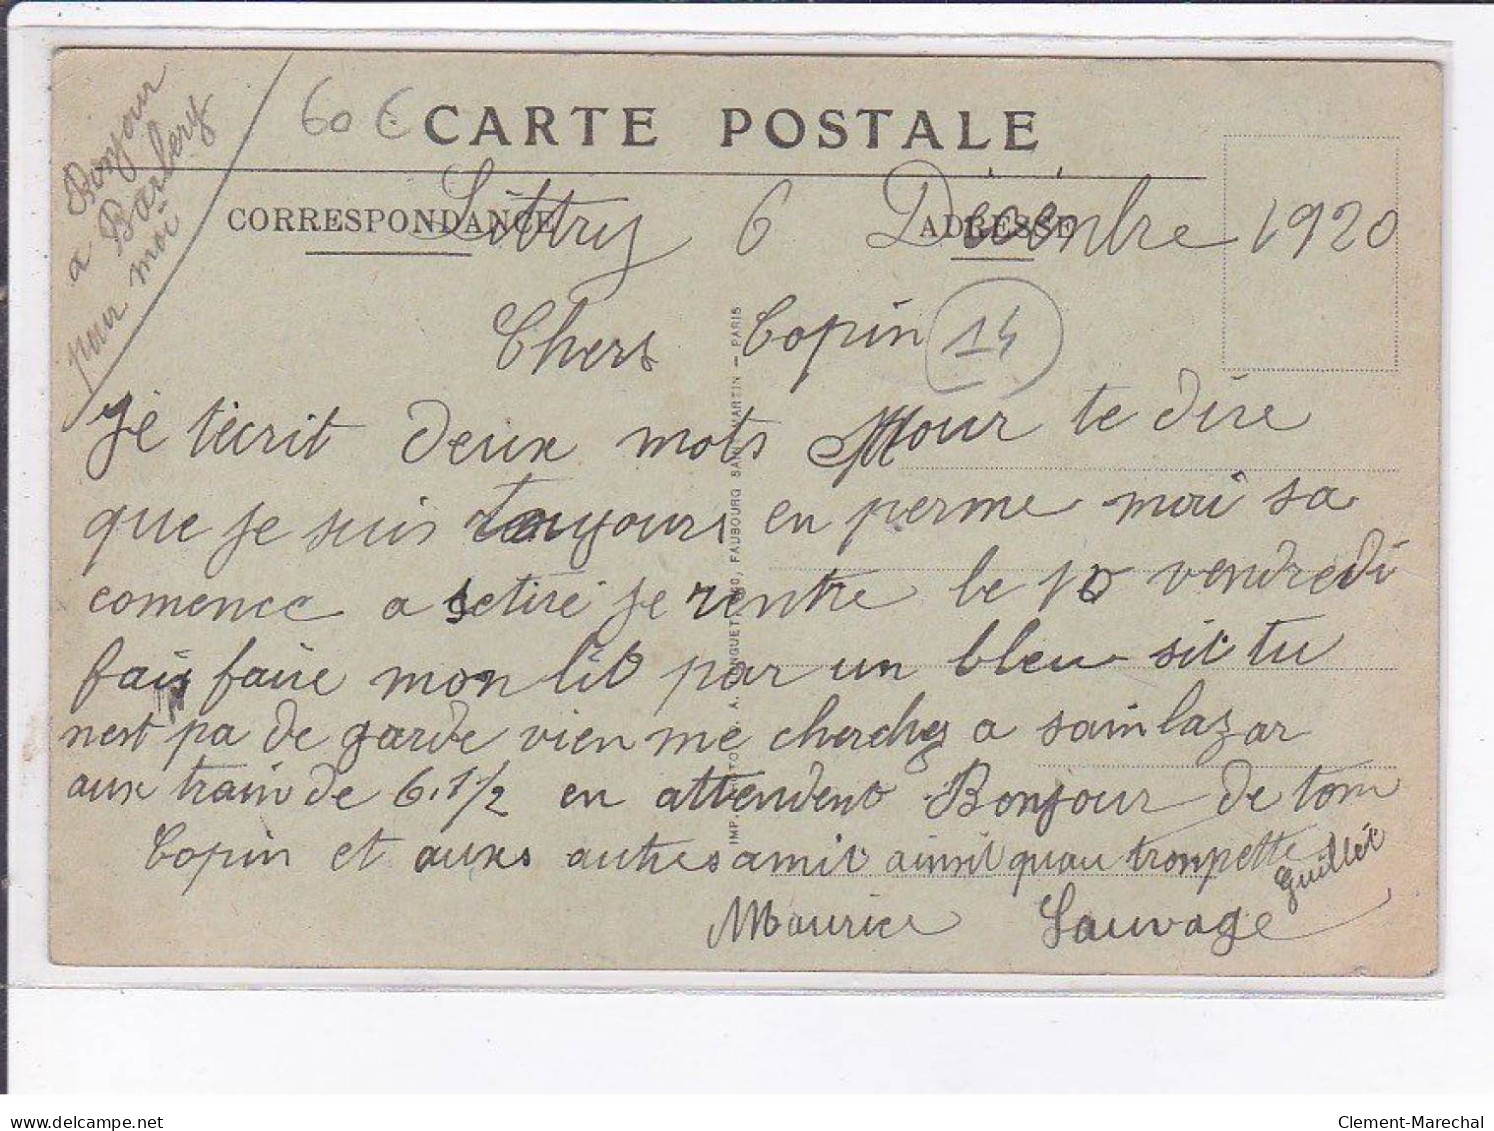 Bonjour
a Barbery
pour moi
60 €
CARTE POSTALE
CORRESPONDANCE
ADRESSE
Littry 6 Décenbre 1920
Chers Copin
14
Je técrit deux mots pour te dire
que je suis toujours en perme moi sa
comence a setiré je rentre le 10 vendredi
fais faire mon lit par un bleu sit tu
nest pa de garde vien me cherchez a sain lazar
aux train de 6.1/2 en attendent Bonjour de tom
Copin et auxs autres amit ainsit quau tronpette
Guillét
Maurice Sauvage
FAUBOURG SAINT-MARTIN — PARIS
IMP.
delcampe.net
Clement-Marechal